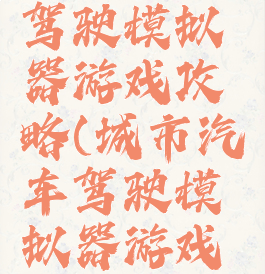 驾驶模拟
器游戏攻
略(城市汽
车驾驶模
拟器游戏